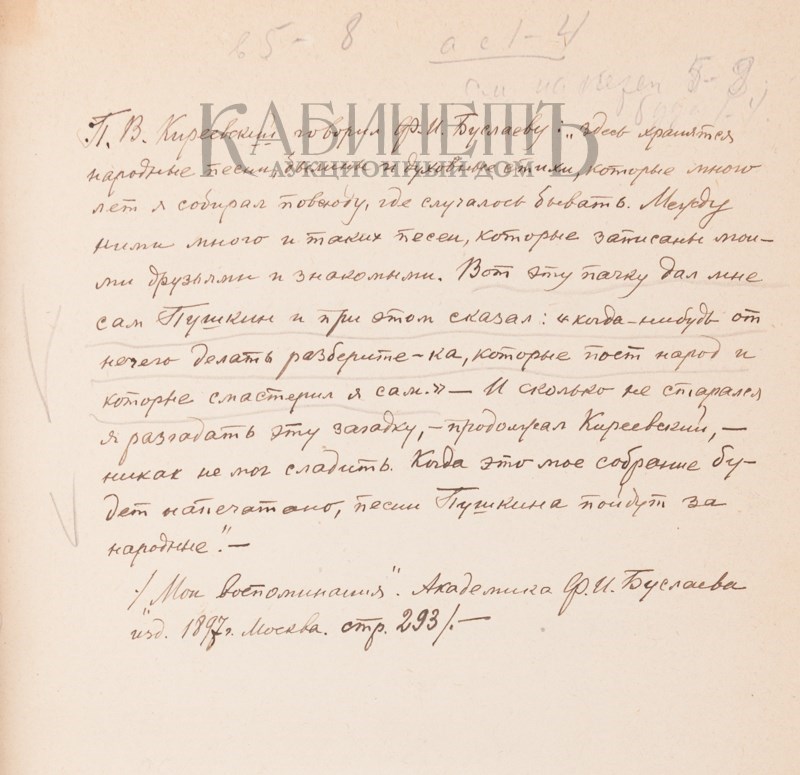 в 5 - 8 а с 1 - 4
см на 5 - 8
КАБИНЕТЪ
АУКЦИОННЫЙ ДОМ
П. В. Киреевский говорил Ф. И. Буслаеву: „здесь хранятся
народные песни, былины и духовные стихи, которые много
лет я собирал повсюду, где случалось бывать. Между
ними много и таких песен, которые записаны мои-
ми друзьями и знакомыми. Вот эту пачку дал мне
сам Пушкин и при этом сказал: „когда-нибудь от
нечего делать разберите-ка, которые поет народ и
которые смастерил я сам.» — И сколько не старался
я разгадать эту загадку, — продолжал Киреевский, —
никак не мог сладить. Когда это мое собрание бу-
дет напечатано, песни Пушкина пойдут за
народные". —
/„Мои воспоминания". Академика Ф. И. Буслаева
изд. 1897 г. Москва. стр. 293/. —